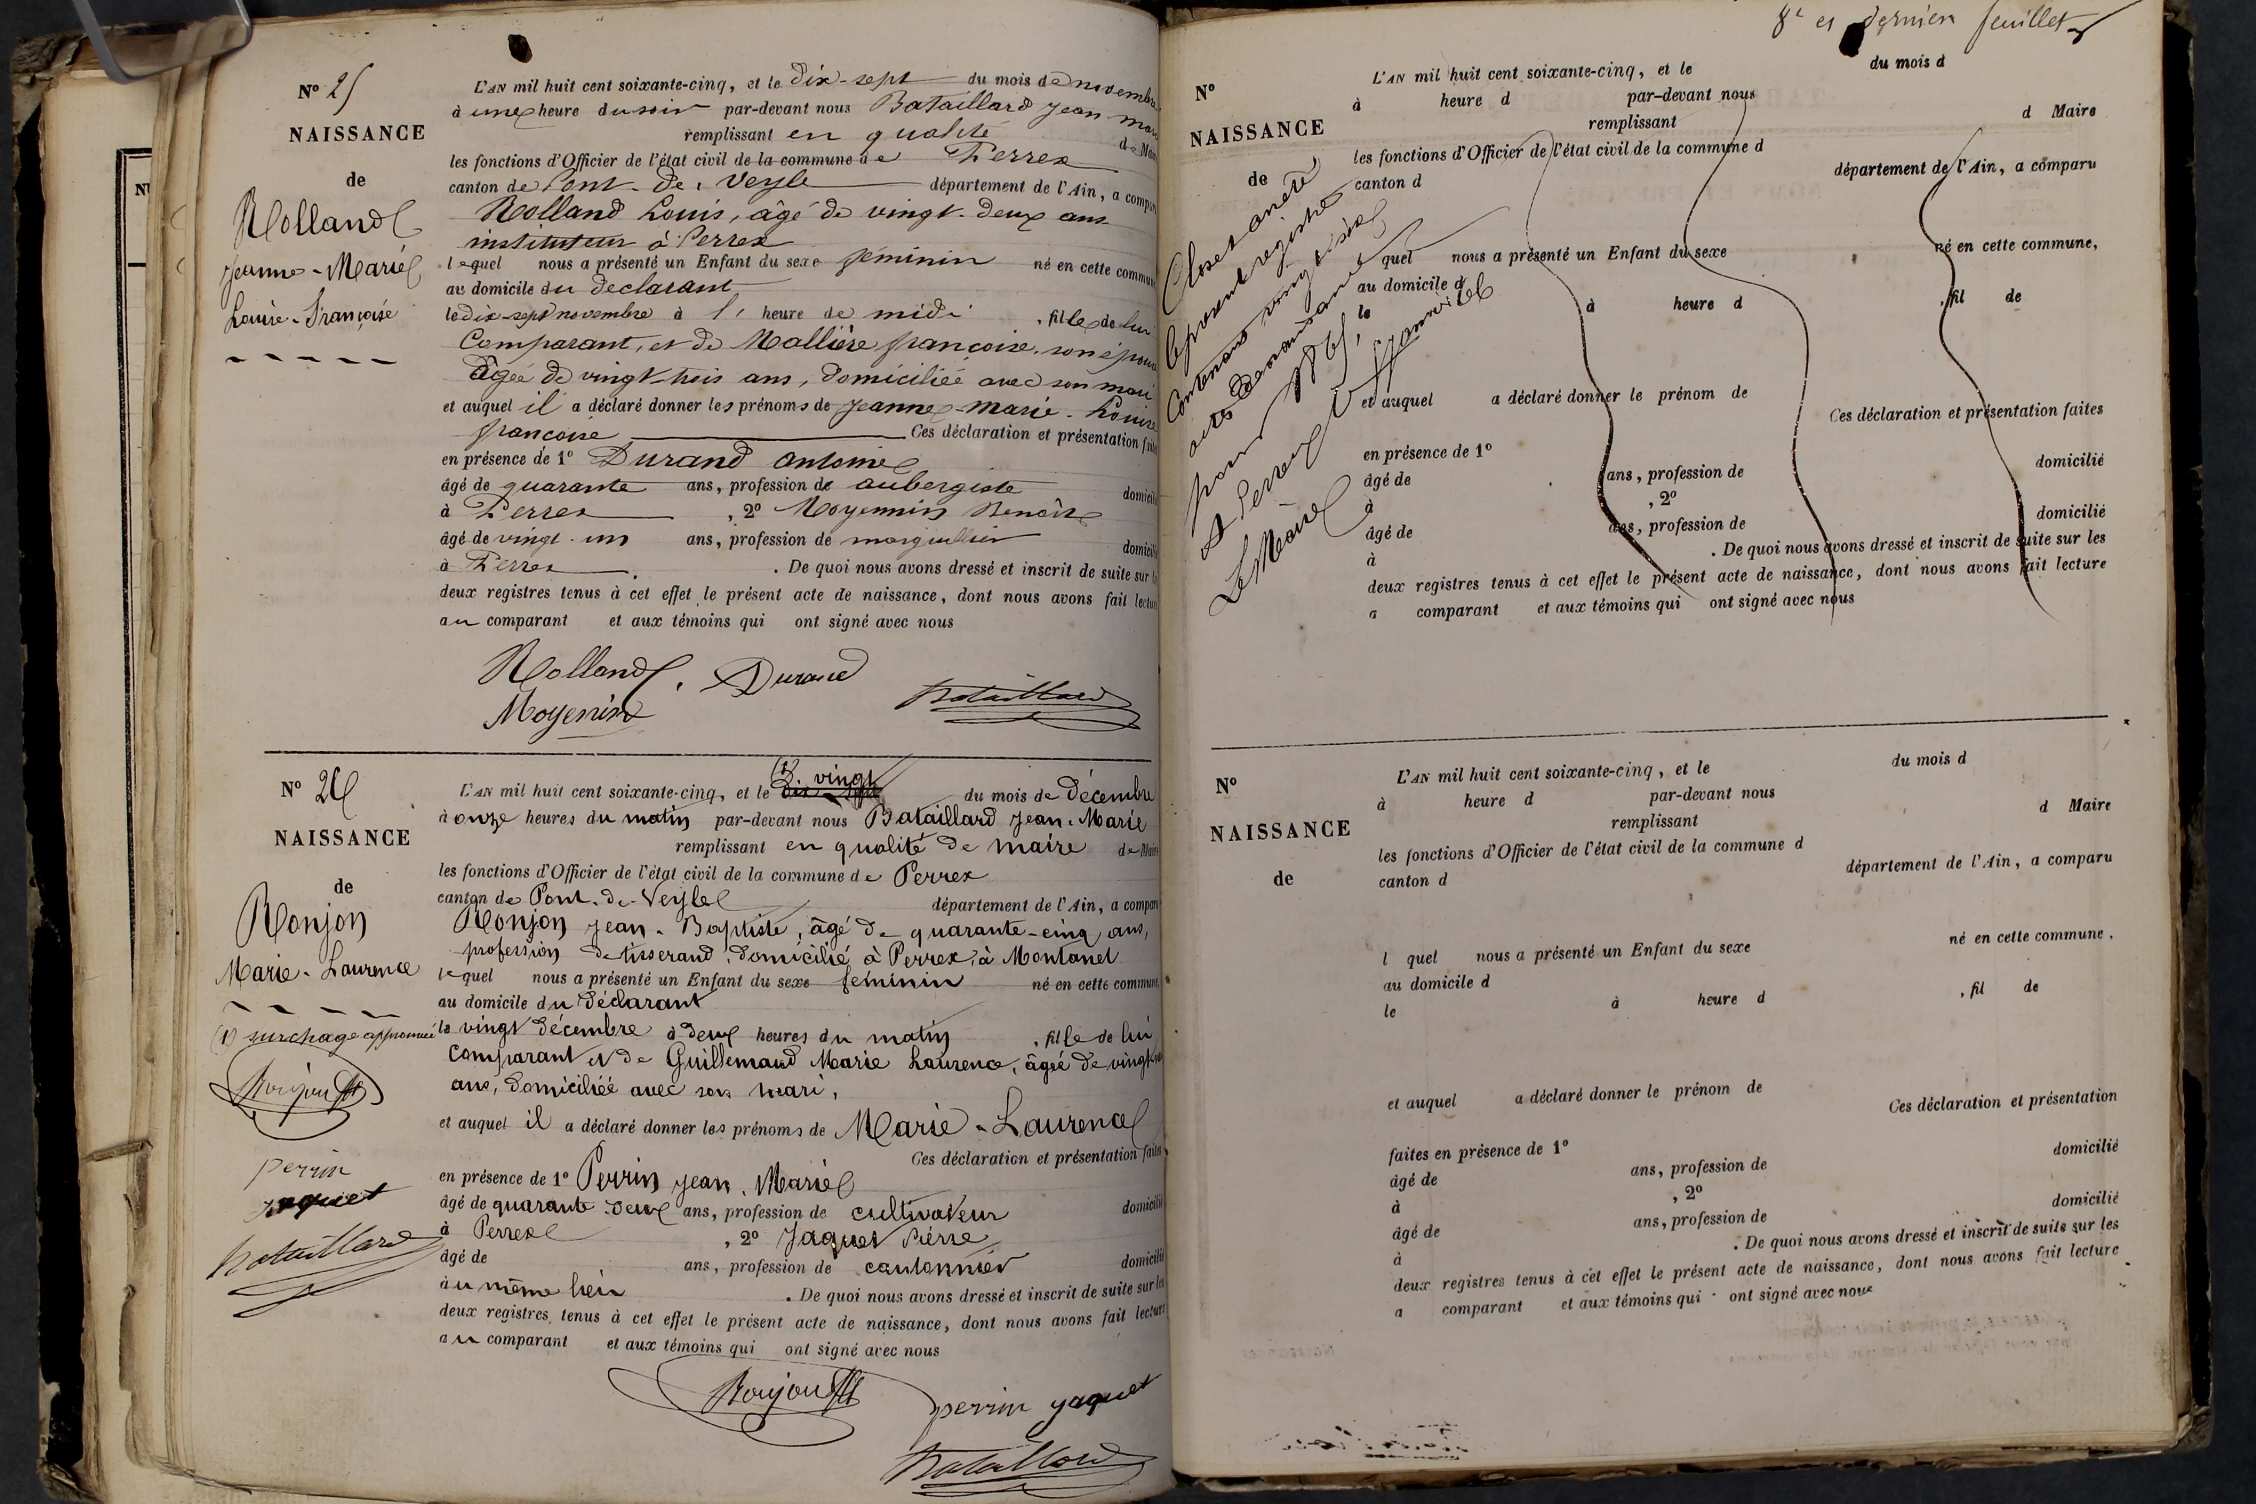 N° 25
NAISSANCE
de
Rolland
Jeanne-Marie
Louise-Françoise
L'AN mil huit cent soixante-cinq, et le dix-sept du mois de novembre
à une heure du soir par-devant nous Bataillard Jean
remplissant en qualité de Maire
les fonctions d'Officier de l'état civil de la commune de Perrex
canton de Pont-de-Veyle département de l'Ain, a comparu
Rolland Louis, âgé de vingt-deux ans
instituteur à Perrex
lequel nous a présenté un Enfant du sexe féminin né en cette commune
au domicile du déclarant
le dix-sept novembre à heure de midi, fille de lui
Comparant, et de Mallière françoise, son épouse
âgée de vingt-trois ans, domiciliée avec son mari
et auquel il a déclaré donner les prénoms de Jeanne-Marie-Louise
françoise Ces déclaration et présentation faites
en présence de 1° Durand Antoine
âgé de quarante ans, profession de aubergiste domicilié
à Perrex, 2° Moyennin Benoît
âgé de vingt-un ans, profession de marguillier domicilié
à Perrex. De quoi nous avons dressé et inscrit de suite sur les
deux registres tenus à cet effet le présent acte de naissance, dont nous avons fait lecture
au comparant et aux témoins qui ont signé avec nous
Rolland. Durand
Moyenin Bataillard
N° 26
NAISSANCE
de
Ronjon
Marie-Laurence
(1) surchage approuvée
Ronjon
perrin
jaquet
Bataillard
(1) vingt
L'AN mil huit cent soixante-cinq, et le dix-sept du mois de décembre
à onze heures du matin par-devant nous Bataillard Jean-Marie
remplissant en qualité de maire de Maire
les fonctions d'Officier de l'état civil de la commune de Perrex
canton de Pont-de-Veyle département de l'Ain, a comparu
Ronjon Jean-Baptiste, âgé de quarante-cinq ans,
profession de tisserand, domicilié à Perrex, à Montanet
lequel nous a présenté un Enfant du sexe féminin né en cette commune,
au domicile du déclarant
le vingt décembre à deux heures du matin, fille de lui
comparant et de Guillemaud Marie Laurence, âgée de vingt
ans, domiciliée avec son mari,
et auquel il a déclaré donner les prénoms de Marie-Laurence
Ces déclaration et présentation faites
en présence de 1° Perrin Jean-Marie
âgé de quarante deux ans, profession de cultivateur domicilié
à Perrex, 2° Jaquet Pierre
âgé de ans, profession de cantonnier domicilié
au même lieu. De quoi nous avons dressé et inscrit de suite sur les
deux registres tenus à cet effet le présent acte de naissance, dont nous avons fait lecture
au comparant et aux témoins qui ont signé avec nous
Ronjon perrin jaquet
Bataillard
8e et dernier feuillet
N°
NAISSANCE
de
Clos et arrêté
le présent registre
Contenant vingt six
actes de naissance
pour 1865,
A Perrex le 1er janvier
Le Maire
L'AN mil huit cent soixante-cinq, et le du mois d
à heure d par-devant nous
remplissant d Maire
les fonctions d'Officier de l'état civil de la commune d
canton d département de l'Ain, a comparu
quel nous a présenté un Enfant du sexe né en cette commune,
au domicile d
le à heure d, fil de
et auquel a déclaré donner le prénom de
Ces déclaration et présentation faites
en présence de 1°
âgé de ans, profession de domicilié
à, 2°
âgé de ans, profession de domicilié
à. De quoi nous avons dressé et inscrit de suite sur les
deux registres tenus à cet effet le présent acte de naissance, dont nous avons fait lecture
a comparant et aux témoins qui ont signé avec nous
N°
NAISSANCE
de
L'AN mil huit cent soixante-cinq, et le du mois d
à heure d par-devant nous
remplissant d Maire
les fonctions d'Officier de l'état civil de la commune d
canton d département de l'Ain, a comparu
l quel nous a présenté un Enfant du sexe né en cette commune,
au domicile d
le à heure d, fil de
et auquel a déclaré donner le prénom de
Ces déclaration et présentation
faites en présence de 1°
âgé de ans, profession de domicilié
à, 2°
âgé de ans, profession de domicilié
à. De quoi nous avons dressé et inscrit de suite sur les
deux registres tenus à cet effet le présent acte de naissance, dont nous avons fait lecture
a comparant et aux témoins qui ont signé avec nous